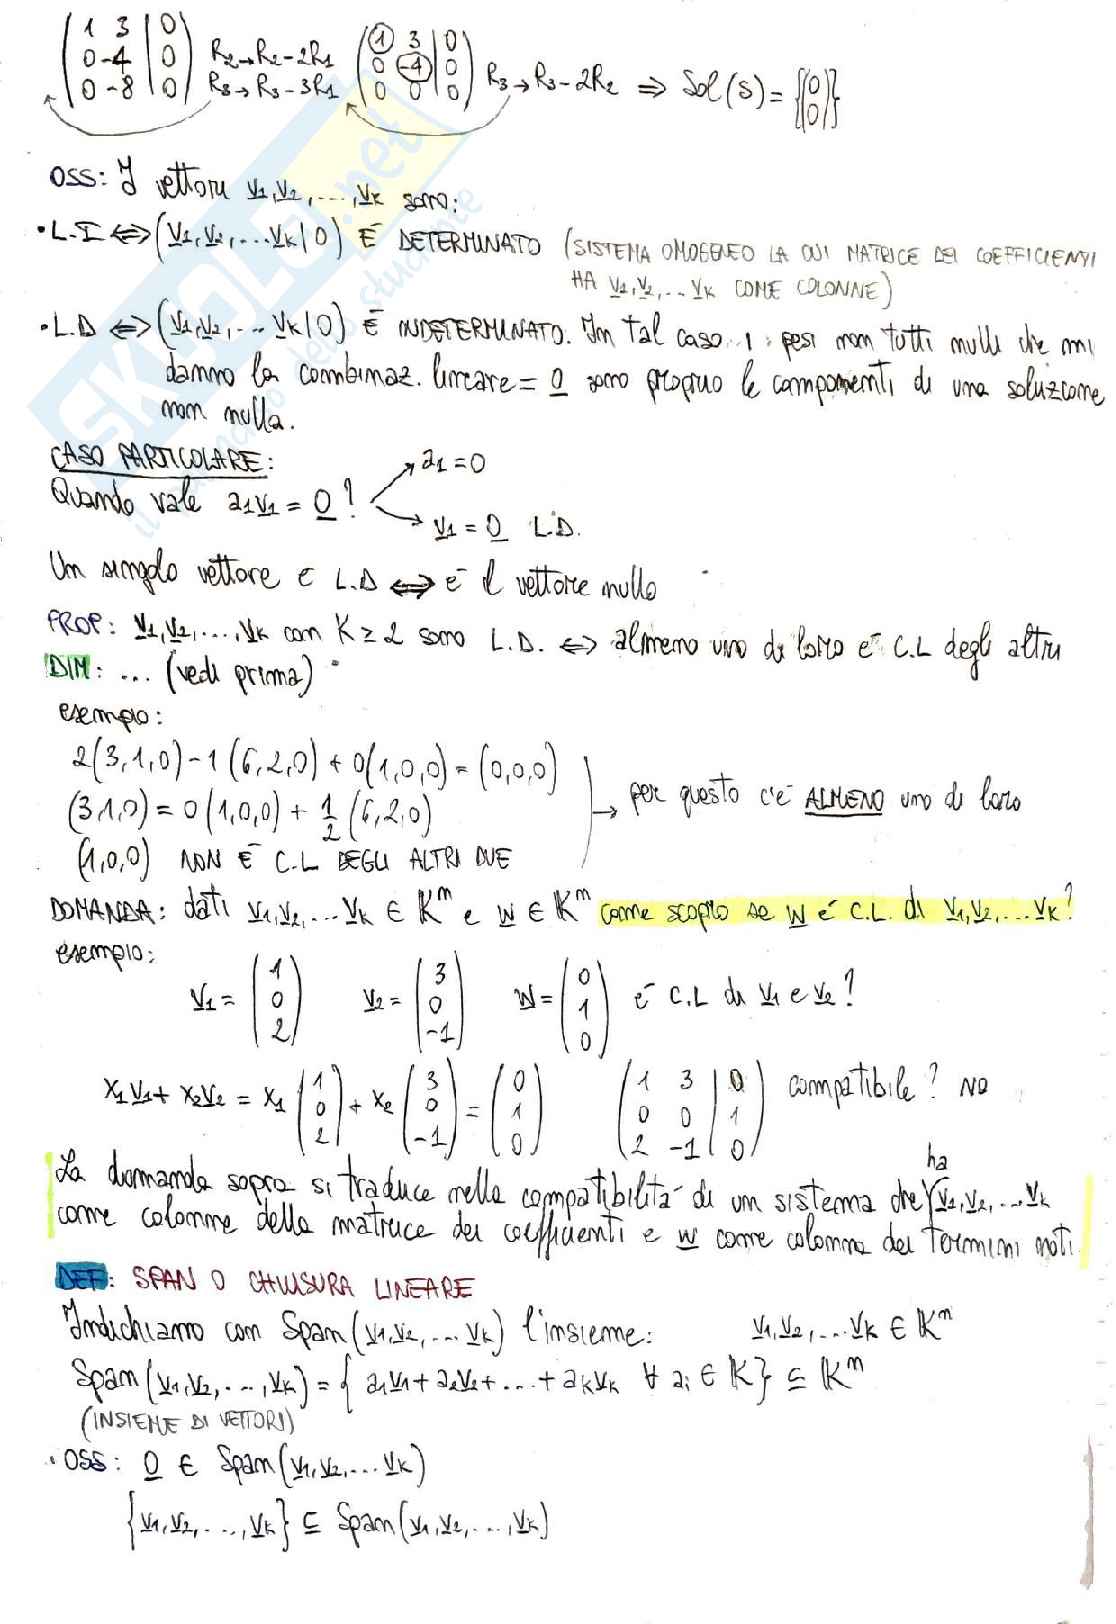 (1 3 | 0) (1 3 | 0)
(0 -4 | 0) R2→R2-2R1 (0 -4 | 0) R3→R3-2R2 ⇒ Sol(S) = {(0 0)}
(0 -8 | 0) R3→R3-3R1 (0 0 | 0)
OSS: I vettori v1, v2, ..., vk sono:
• L.I ⇔ (v1, v2, ... vk | 0) È DETERMINATO (SISTEMA OMOGENEO LA CUI MATRICE DEI COEFFICIENTI
HA v1, v2, .. vk COME COLONNE)
• L.D ⇔ (v1, v2, ... vk | 0) È INDETERMINATO. In tal caso i pesi non tutti nulli che mi
danno la combinaz. lineare = 0 sono proprio le componenti di una soluzione
non nulla.
CASO PARTICOLARE:
a1 = 0
Quando vale a1v1 = 0 ?
v1 = 0 L.D.
Un singolo vettore è L.D ⇔ è il vettore nullo
PROP: v1, v2, ..., vk con K ≥ 2 sono L.D. ⇔ almeno uno di loro è C.L degli altri
DIM: ... (vedi prima)
esempio:
2(3,1,0) - 1(6,2,0) + 0(1,0,0) = (0,0,0)
(3,1,0) = 0(1,0,0) + 1/2 (6,2,0) → per questo c'è ALMENO uno di loro
(1,0,0) NON È C.L DEGLI ALTRI DUE
DOMANDA: dati v1, v2, ... vk ∈ K^m e w ∈ K^m come scopro se w è C.L. di v1, v2, ... vk?
esempio:
v1 = (1 0 2) v2 = (3 0 -1) w = (0 1 0) è C.L di v1 e v2?
x1v1 + x2v2 = x1 (1 0 2) + x2 (3 0 -1) = (0 1 0) (1 3 | 0) compatibile? NO
(0 0 | 1)
(2 -1 | 0)
ha
La domanda sopra si traduce nella compatibilità di un sistema che v1, v2, ... vk
come colonne della matrice dei coefficienti e w come colonna dei termini noti.
DEF: SPAN O CHIUSURA LINEARE
Indichiamo con Span(v1, v2, ... vk) l'insieme: v1, v2, ... vk ∈ K^m
Span(v1, v2, ..., vk) = { a1v1 + a2v2 + ... + akvk ∀ ai ∈ K } ⊆ K^m
(INSIEME DI VETTORI)
• OSS: 0 ∈ Span(v1, v2, ... vk)
{v1, v2, ..., vk} ⊆ Span(v1, v2, ..., vk)
SKUOLA.net